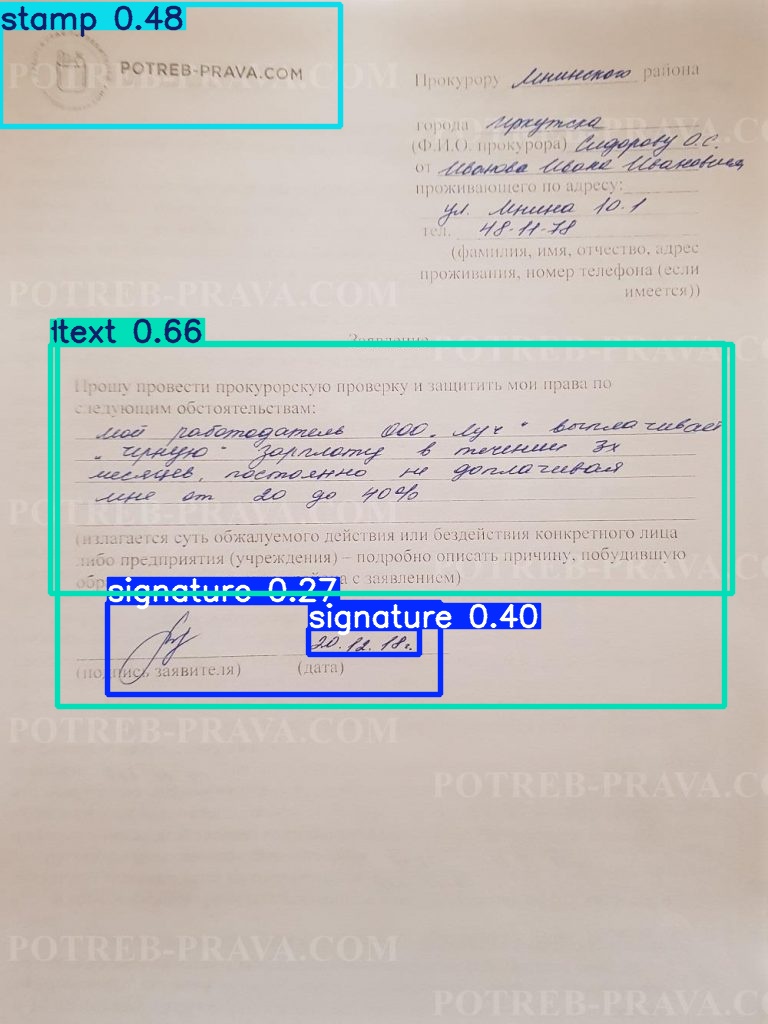 stamp 0.48
POTREB-PRAVA.COM
Прокурору Мнинского района
города Иркутска
(Ф.И.О. прокурора) Сидорову О.С.
от Иванова Ивана Ивановича,
проживающего по адресу:
ул. Мнина 10-1
тел. 48-11-78
(фамилия, имя, отчество, адрес
проживания, номер телефона (если
имеется))
POTREB-PRAVA.COM
text 0.66
Заявление
Прошу провести прокурорскую проверку и защитить мои права по
следующим обстоятельствам:
мой работодатель ООО „Луч" выплачивает
„черную" зарплату в течении 3х
месяцев, постоянно не доплачивая
мне от 20 до 40%
(излагается суть обжалуемого действия или бездействия конкретного лица
либо предприятия (учреждения) – подробно описать причину, побудившую
с заявлением)
signature 0.27
signature 0.40
20.12.18г.
(подпись заявителя) (дата)
POTREB-PRAVA.COM
POTREB-PRAVA.CO
POTREB-PRAVA.COM
POTREB-PRAVA.CO